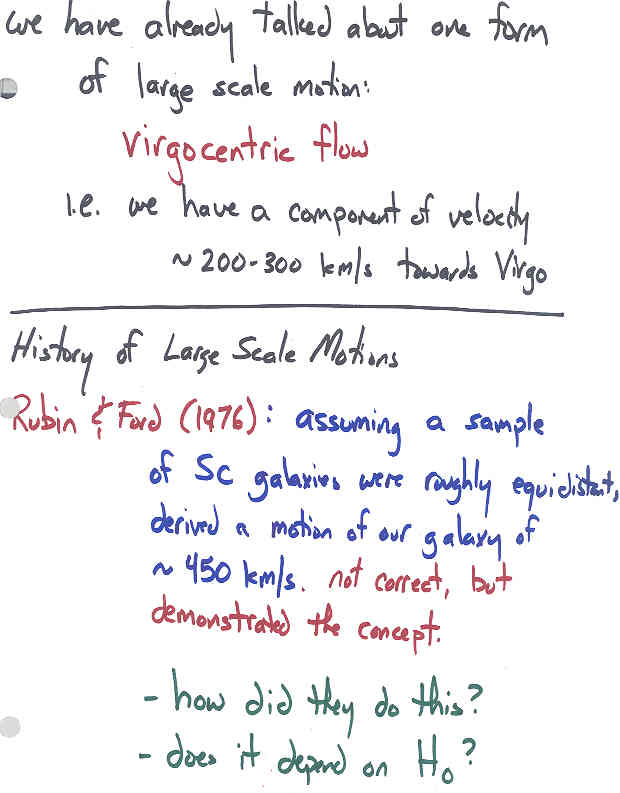 we have already talked about one form
of large scale motion:
Virgocentric flow
i.e. we have a component of velocity
~ 200-300 km/s towards Virgo
History of Large Scale Motions
Rubin & Ford (1976): assuming a sample
of Sc galaxies were roughly equidistant,
derived a motion of our galaxy of
~ 450 km/s. not correct, but
demonstrated the concept.
- how did they do this?
- does it depend on H₀?